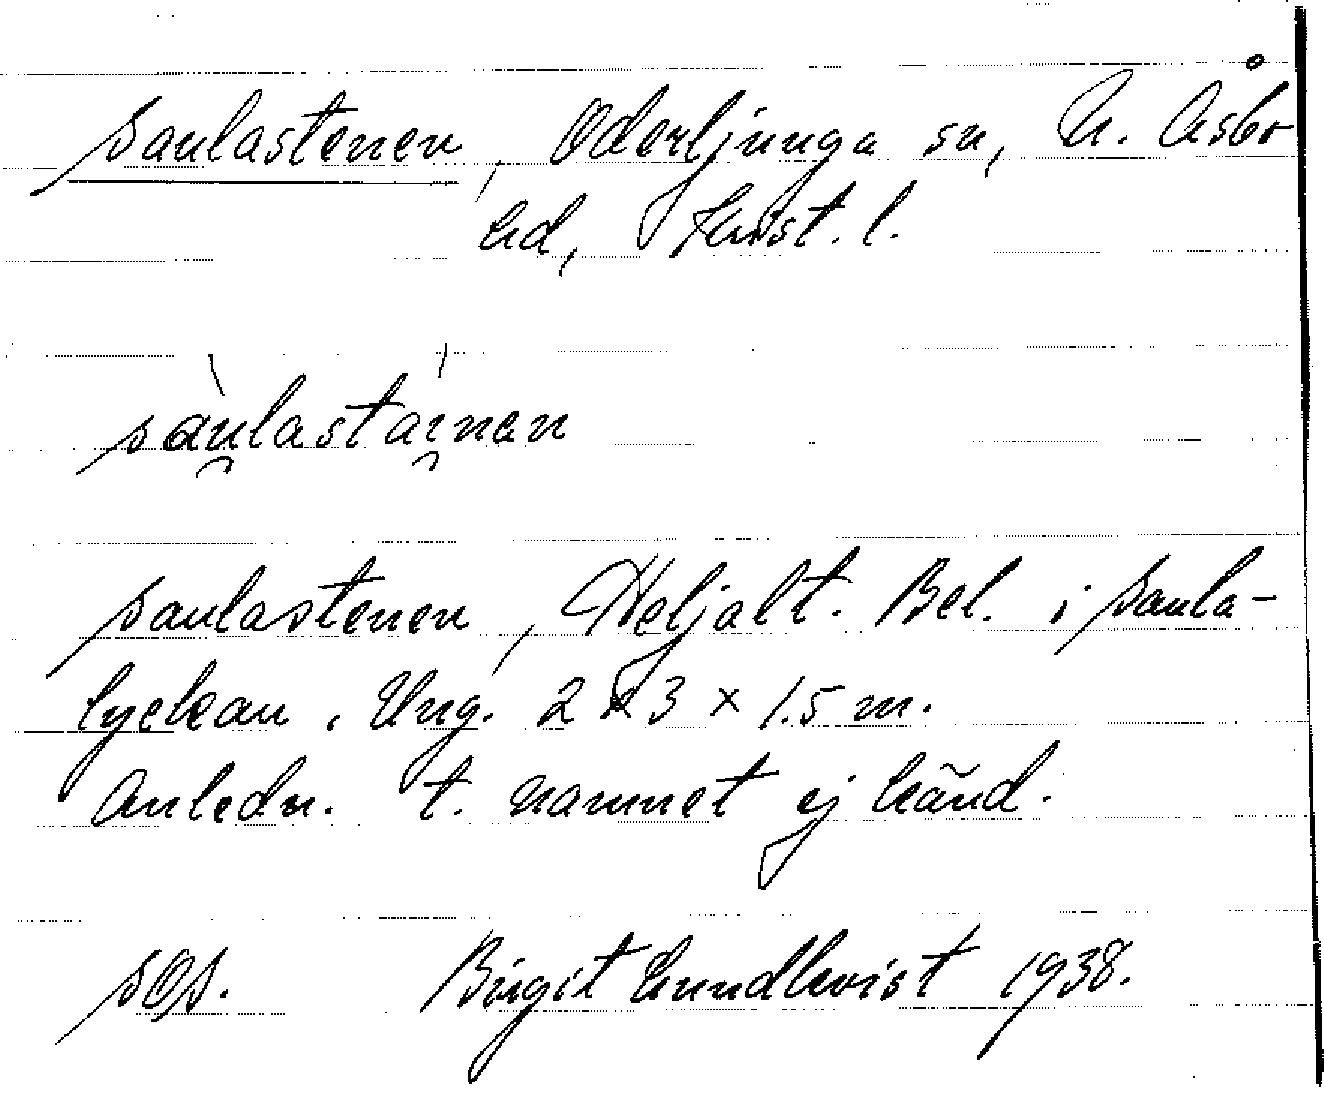 saulastenen, Oderljunga sn, N. Åsbo
hd, Krist. l.
sau̯lastai̯nen
saulastenen, Heljalt. Bel. i saula-
lyckan. Ung. 2 x 3 x 1.5 m.
Anledn. t. namnet ej känd.
sOs. Birgit Lundkvist 1938.